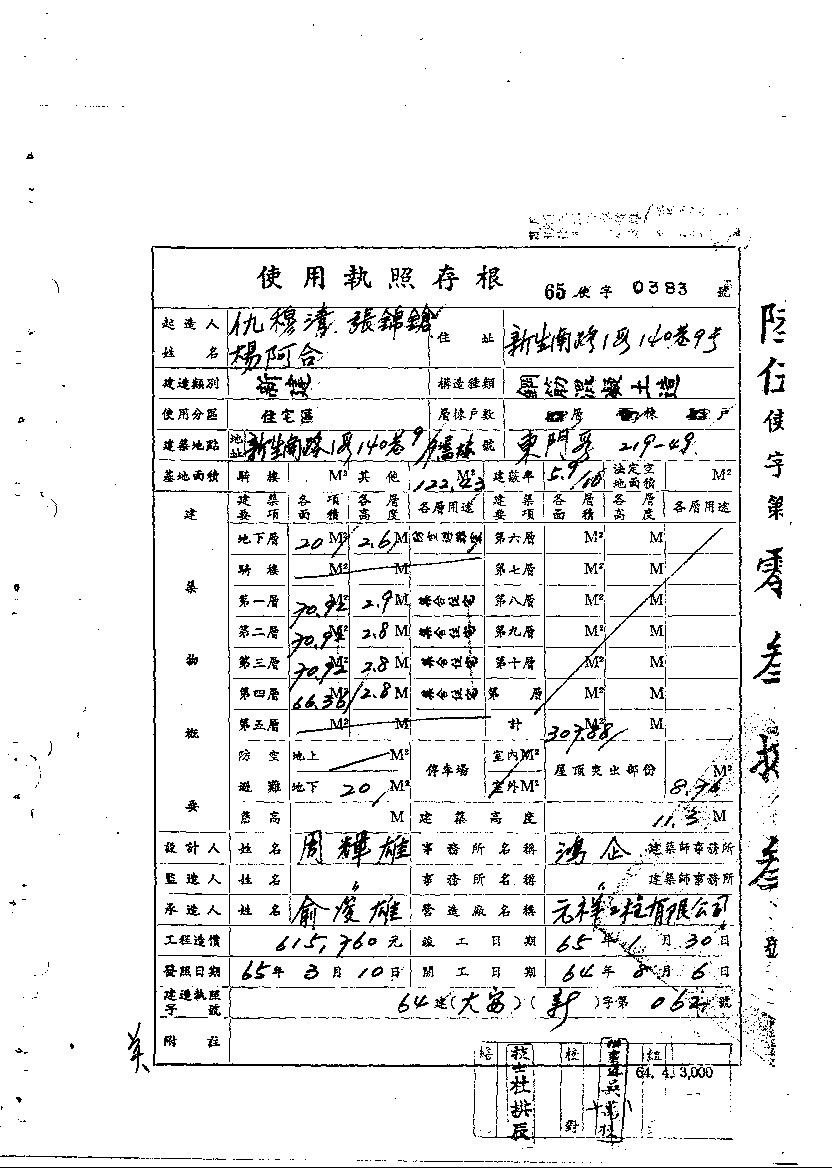 使用執照存根 65 使字 0383 號
起造人姓名 仇穆濤 張錦鎗 楊阿合 住址 新生南路1段140巷9号
建造類別 新建 構造種類 鋼筋混凝土造
使用分區 住宅區 層棟戶數 層 棟 戶
建築地點 地址 新生南路1段140巷9 號 東門段 219-49
基地面積 騎樓 M² 其他 122.43 M² 建蔽率 5.9/10 法定空地面積 M²
建築物概要 建築要項 各項面積 各層高度 各層用途 建築要項 各層面積 各層高度 各層用途
地下層 20 M² 2.6 M 第六層 M² M
騎樓 M² M 第七層 M² M
第一層 70.92 M² 2.9 M 第八層 M² M
第二層 70.92 M² 2.8 M 第九層 M² M
第三層 70.92 M² 2.8 M 第十層 M² M
第四層 66.36 M² 2.8 M 第 層 M² M
第五層 M² M 計 307.88 M² M
防空避難 地上 M² 停車場 室內 M² 屋頂突出部份 8.76 M²
地下 20 M² 室外 M²
簷高 M 建築高度 11.3 M
設計人 姓名 周輝雄 事務所名稱 鴻企 建築師事務所
監造人 姓名 〃 事務所名稱 〃 建築師事務所
承造人 姓名 俞俊雄 營造廠名稱 元祥工程有限公司
工程造價 615,760 元 竣工日期 65 年 1 月 30 日
發照日期 65 年 3 月 10 日 開工日期 64 年 8 月 6 日
建造執照字號 64 建(大安)(新)字第 062 號
附註
64. 4. 3,000
校對
技士杜拱辰
陸伍使字第零叁捌叁號